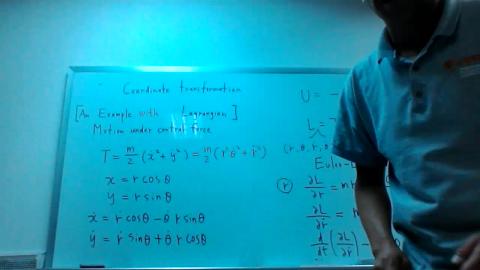 Coordinate transformation
[An Example with Lagrangian]
Motion under central force
T = m/2 (ẋ² + ẏ²) = m/2 (r²θ̇² + ṙ²)
x = r cosθ
y = r sinθ
ẋ = ṙ cosθ - θ̇ r sinθ
ẏ = ṙ sinθ + θ̇ r cosθ
U = -
L = T
(r, θ, ṙ,
Euler-
(r) ∂L/∂r = mr
∂L/∂ṙ = m
d/dt (∂L/∂ṙ) -